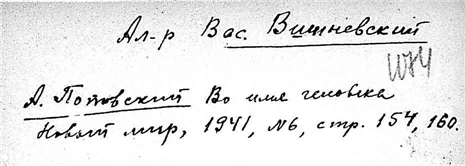 Ал-р Вас. Вишневский
А. Поповский Во имя человека
Новый мир, 1941, №6, стр. 154, 160.